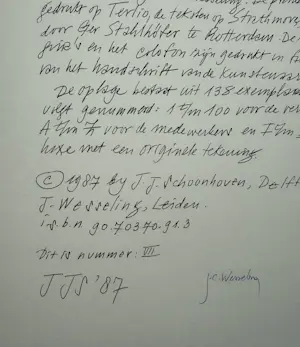 gedrukt op Tertio, de teksten op Strathmore
door Ger Stahlhöfer te Rotterdam. De
en het colofon zijn gedrukt in
van het handschrift van de kunstenaar
De oplage bestaat uit 138 exemplaren
volgt genummerd: 1 t/m 100 voor de
A t/m voor de medewerkers en I t/m
luxe met een originele tekening.
© 1987 by J.J. Schoonhoven, Delft
J. Wesseling, Leiden.
i.s.b.n 90.70370.91.3
Dit is nummer: VII
JJS '87
J.C. Wesseling